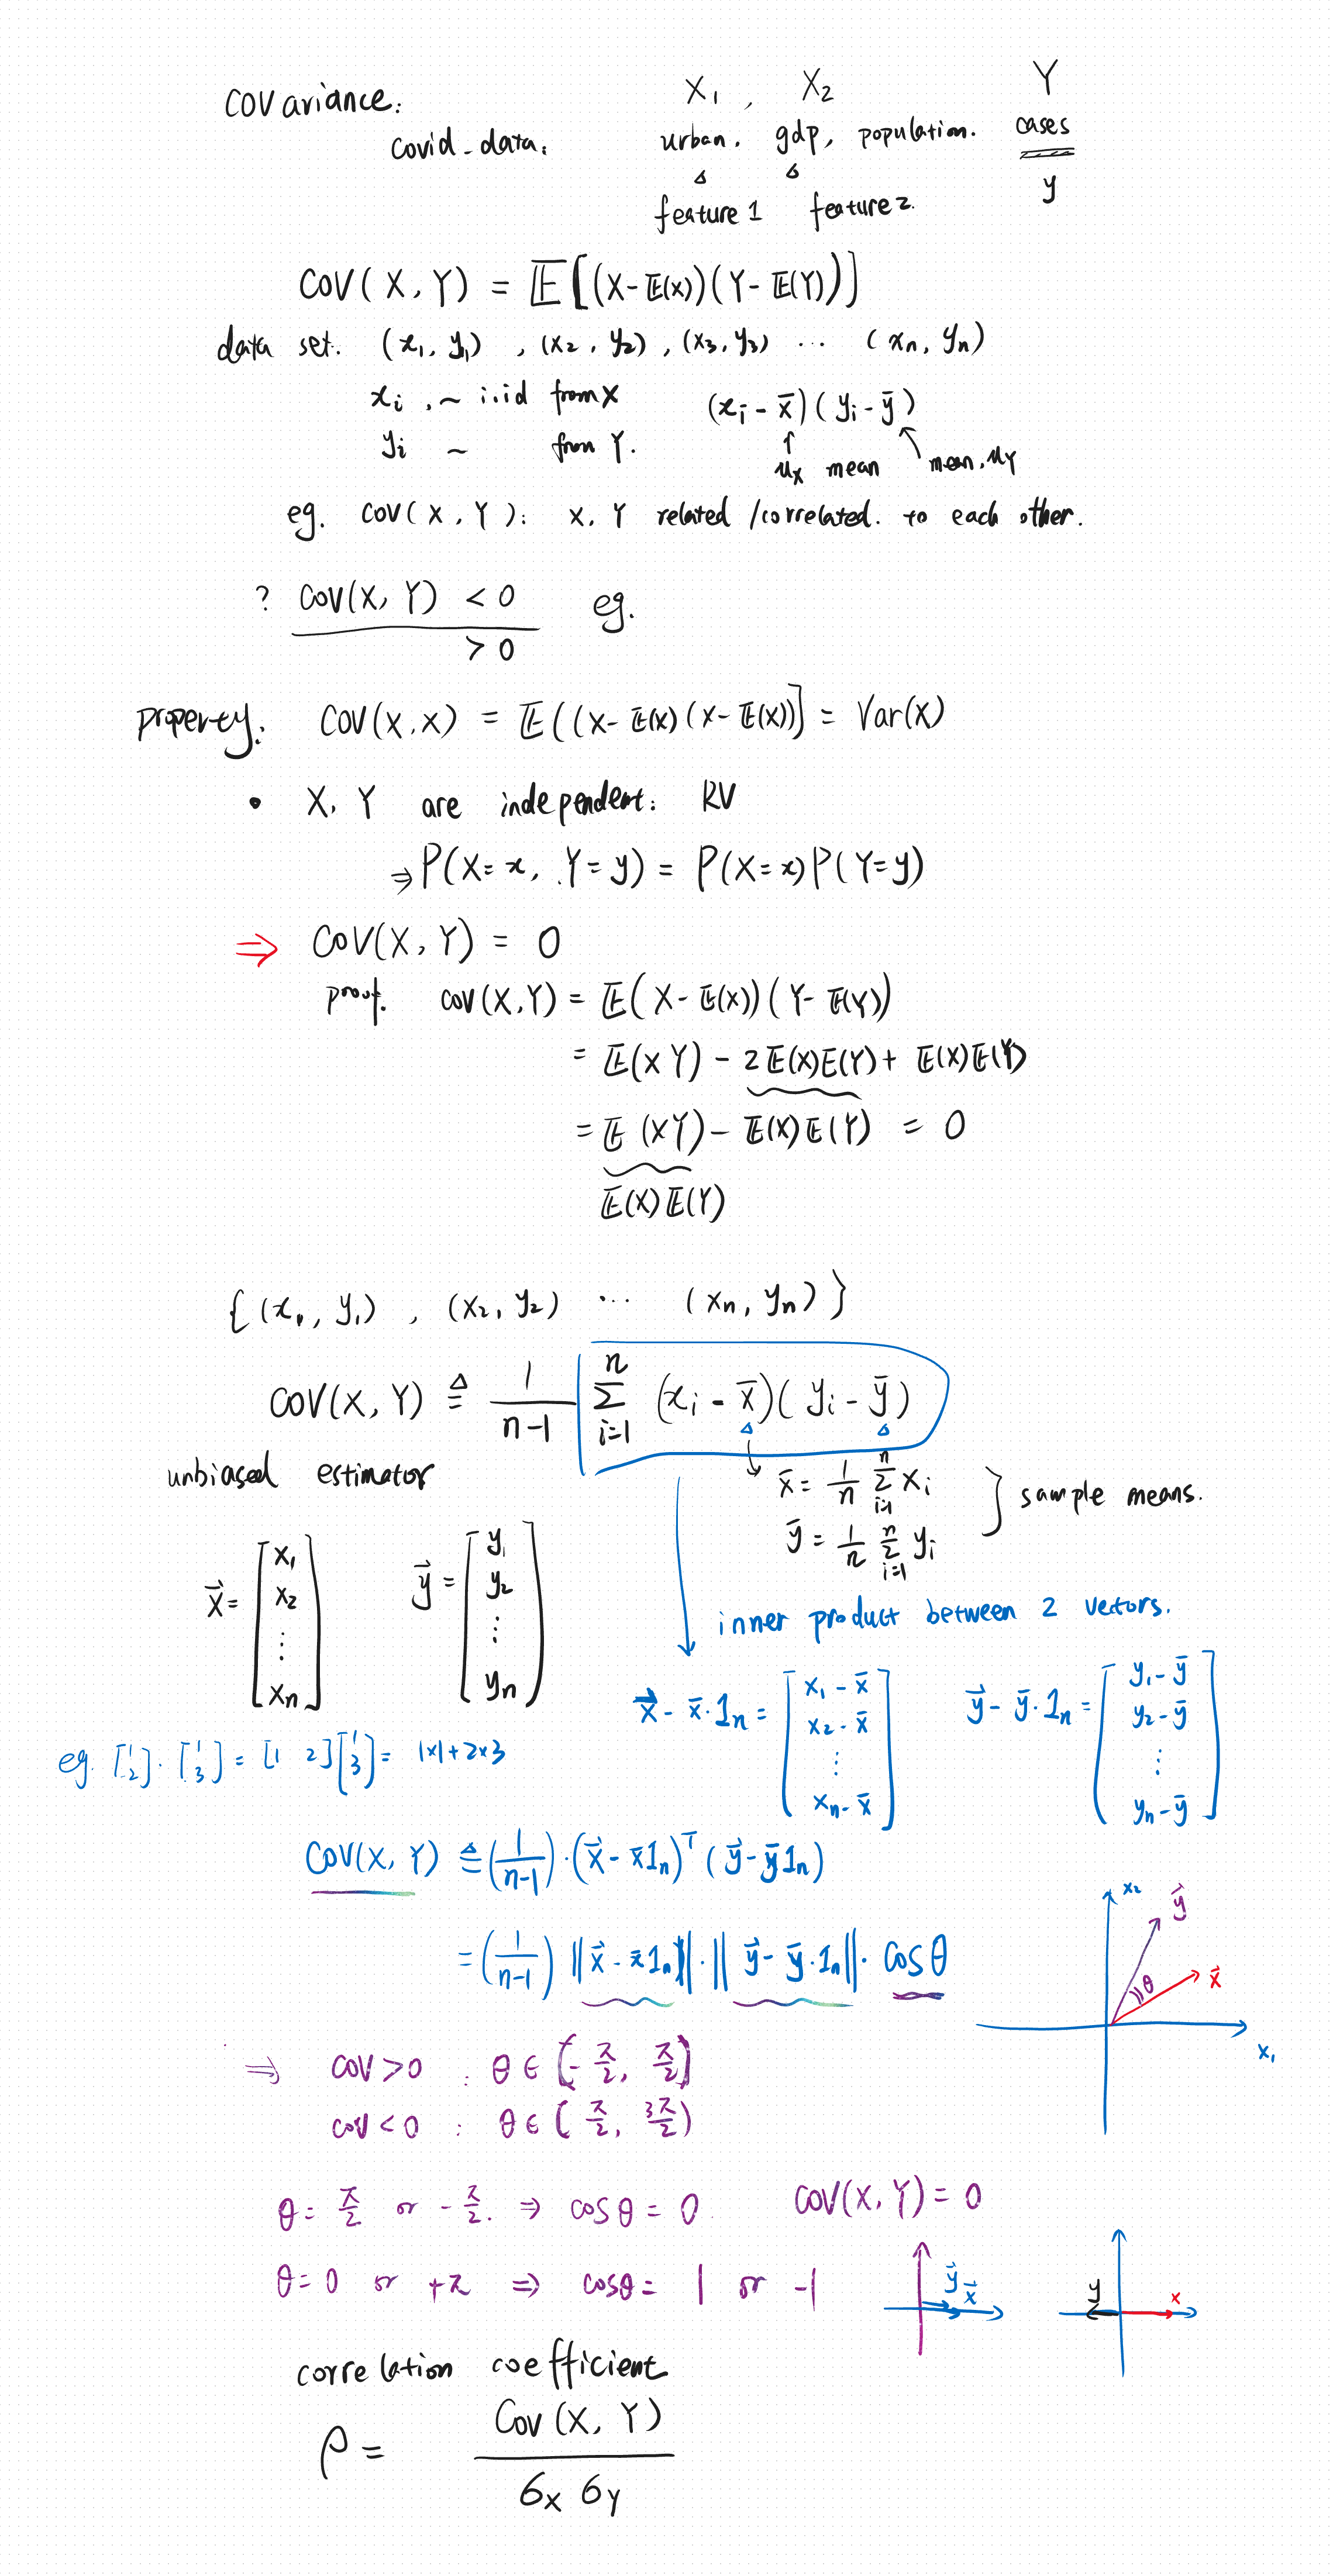 Covariance:
X₁ , X₂ Y
covid_data: urban, gdp, population. cases
feature 1 feature 2. y
COV(X,Y) = 𝔼[(X-𝔼(x))(Y-𝔼(Y))]
data set. (x₁, y₁) , (x₂, y₂), (x₃, y₃) ... (xₙ, yₙ)
xᵢ ~ i.i.d from X (xᵢ - x̄)(yᵢ - ȳ)
yᵢ ~ from Y.
μₓ mean mean. μY
eg. COV(X, Y): X, Y related / correlated. to each other.
? COV(X, Y) < 0 eg.
> 0
property: COV(X,X) = 𝔼((X-𝔼(X)(X-𝔼(X))] = Var(X)
• X, Y are independent: RV
⇒ P(X=x, Y=y) = P(X=x)P(Y=y)
⇒ COV(X, Y) = 0
proof. COV(X,Y) = 𝔼(X-𝔼(X))(Y-𝔼(Y))
= 𝔼(XY) - 2𝔼(X)𝔼(Y) + 𝔼(X)𝔼(Y)
= 𝔼(XY) - 𝔼(X)𝔼(Y) = 0
𝔼(X)𝔼(Y)
{(x₁, y₁) , (x₂, y₂) ... (xₙ, yₙ)}
COV(X, Y) ≜ 1/(n-1) Σᵢ₌₁ⁿ (xᵢ - x̄)(yᵢ - ȳ)
unbiased estimator
x̄ = 1/n Σᵢ₌₁ⁿ xᵢ } sample means.
ȳ = 1/n Σᵢ₌₁ⁿ yᵢ
x⃗ = [x₁ x₂ ⋮ xₙ] y⃗ = [y₁ y₂ ⋮ yₙ]
inner product between 2 vectors.
x⃗ - x̄·1ₙ = [x₁ - x̄ x₂ - x̄ ⋮ xₙ - x̄] y⃗ - ȳ·1ₙ = [y₁ - ȳ y₂ - ȳ ⋮ yₙ - ȳ]
eg. [1 2]·[1 3] = [1 2][1 3] = 1×1+2×3
COV(X, Y) ≜ (1/(n-1))·(x⃗ - x̄1ₙ)ᵀ(y⃗ - ȳ1ₙ)
= (1/(n-1)) ||x⃗ - x̄1ₙ||·||y⃗ - ȳ·1ₙ||· cos θ
x₂
y⃗
θ
x⃗
x₁
⇒ COV>0 : θ ∈ (-π/2, π/2)
COV<0 : θ ∈ (π/2, 3π/2)
θ = π/2 or -π/2. ⇒ cos θ = 0 COV(X, Y) = 0
θ = 0 or +π ⇒ cosθ = 1 or -1
y⃗ x⃗
y x
correlation coefficient
ρ = Cov(X, Y) / σₓ σY